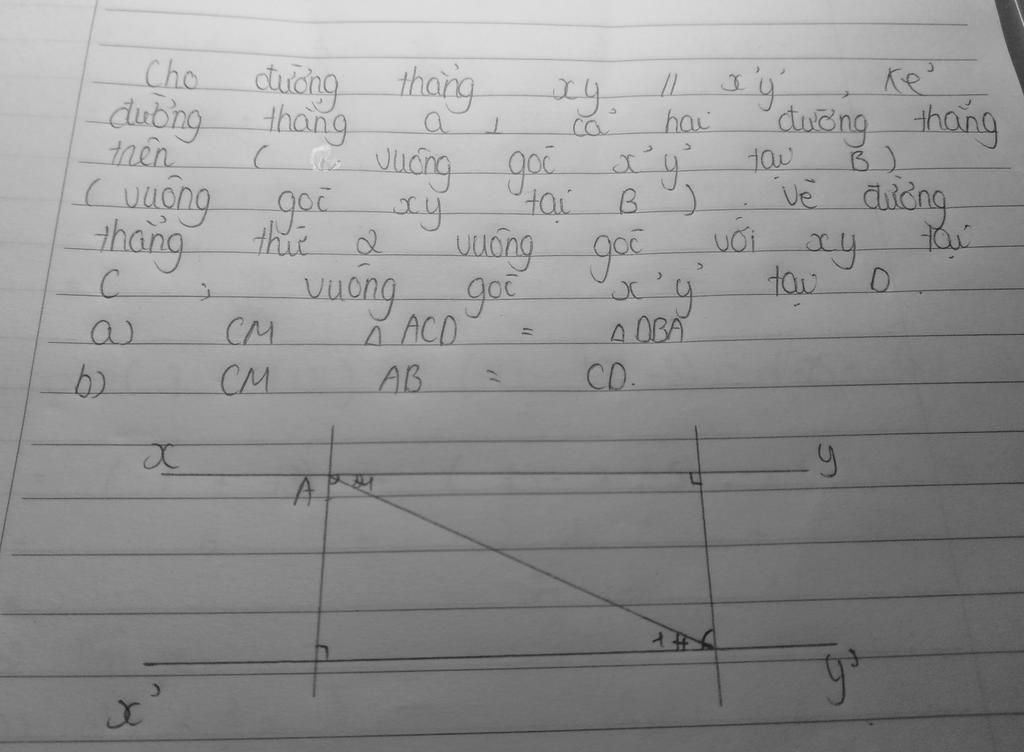 Cho đường thẳng xy // x'y', kẻ
đường thẳng a ⊥ cả hai đường thẳng
trên ( vuông góc x'y' tại B)
(vuông góc xy tại B). Vẽ đường
thẳng thứ 2 vuông góc với xy tại
C, vuông góc x'y' tại D.
a) CM △ACD = △DBA
b) CM AB = CD.
x y
A
1
x' y'